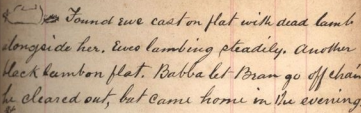 Found ewe cast on flat with dead lamb
alongside her. Ewes lambing steadily. Another
black lamb on flat. Babba let Bran go off chain
he cleared out, but came home in the evening